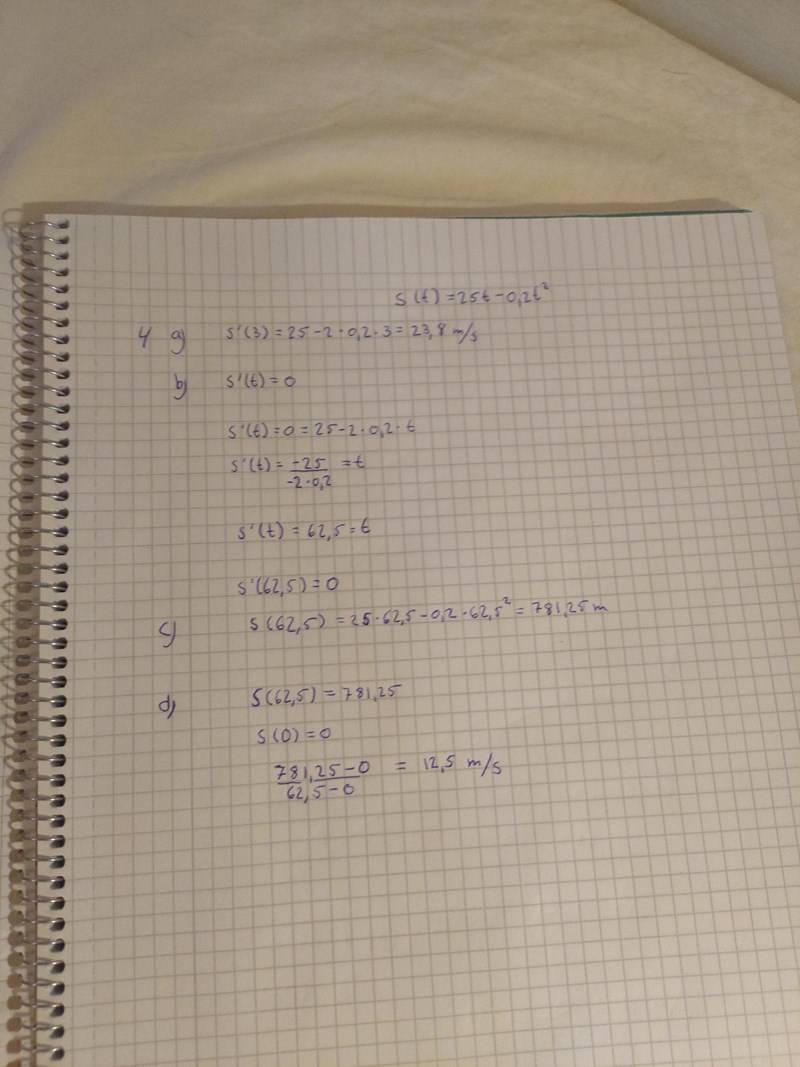 s(t) = 25t - 0,2t²
4 a) s'(3) = 25 - 2 · 0,2 · 3 = 23,8 m/s
b) s'(t) = 0
s'(t) = 0 = 25 - 2 · 0,2 · t
s'(t) = -25 / -2 · 0,2 = t
s'(t) = 62,5 = t
s'(62,5) = 0
c) s(62,5) = 25 · 62,5 - 0,2 · 62,5² = 781,25 m
d) s(62,5) = 781,25
s(0) = 0
781,25 - 0 / 62,5 - 0 = 12,5 m/s